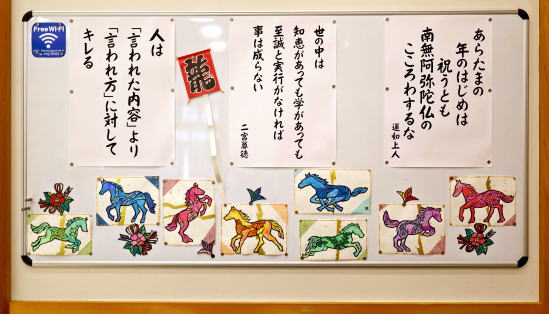 あらたまの
年のはじめは
祝うとも
南無阿弥陀仏の
こころわするな
蓮如上人
世の中は
知恵があっても学があっても
至誠と実行がなければ
事は成らない
二宮尊徳
龍
人は
「言われた内容」より
「言われ方」に対して
キレる
Free Wi-Fi